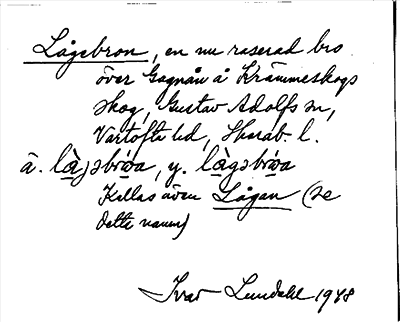 Lågebron, en nu raserad bro
över Gagnån å Krämmeskogs
skog, Gustav Adolfs sn,
Vartofta hd, Skarab. l.
ä. là̱jəbrɷ̀a, y. là̱gəbrɷ̀a
Kallas även Lågan (se
detta namn)
Ivar Lundahl 1948